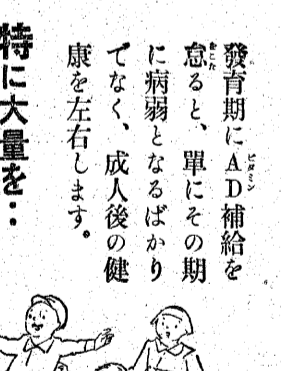 發育期にAD補給を
怠ると、單にその期
に病弱となるばかり
でなく、成人後の健
康を左右します。
特に大量を‥